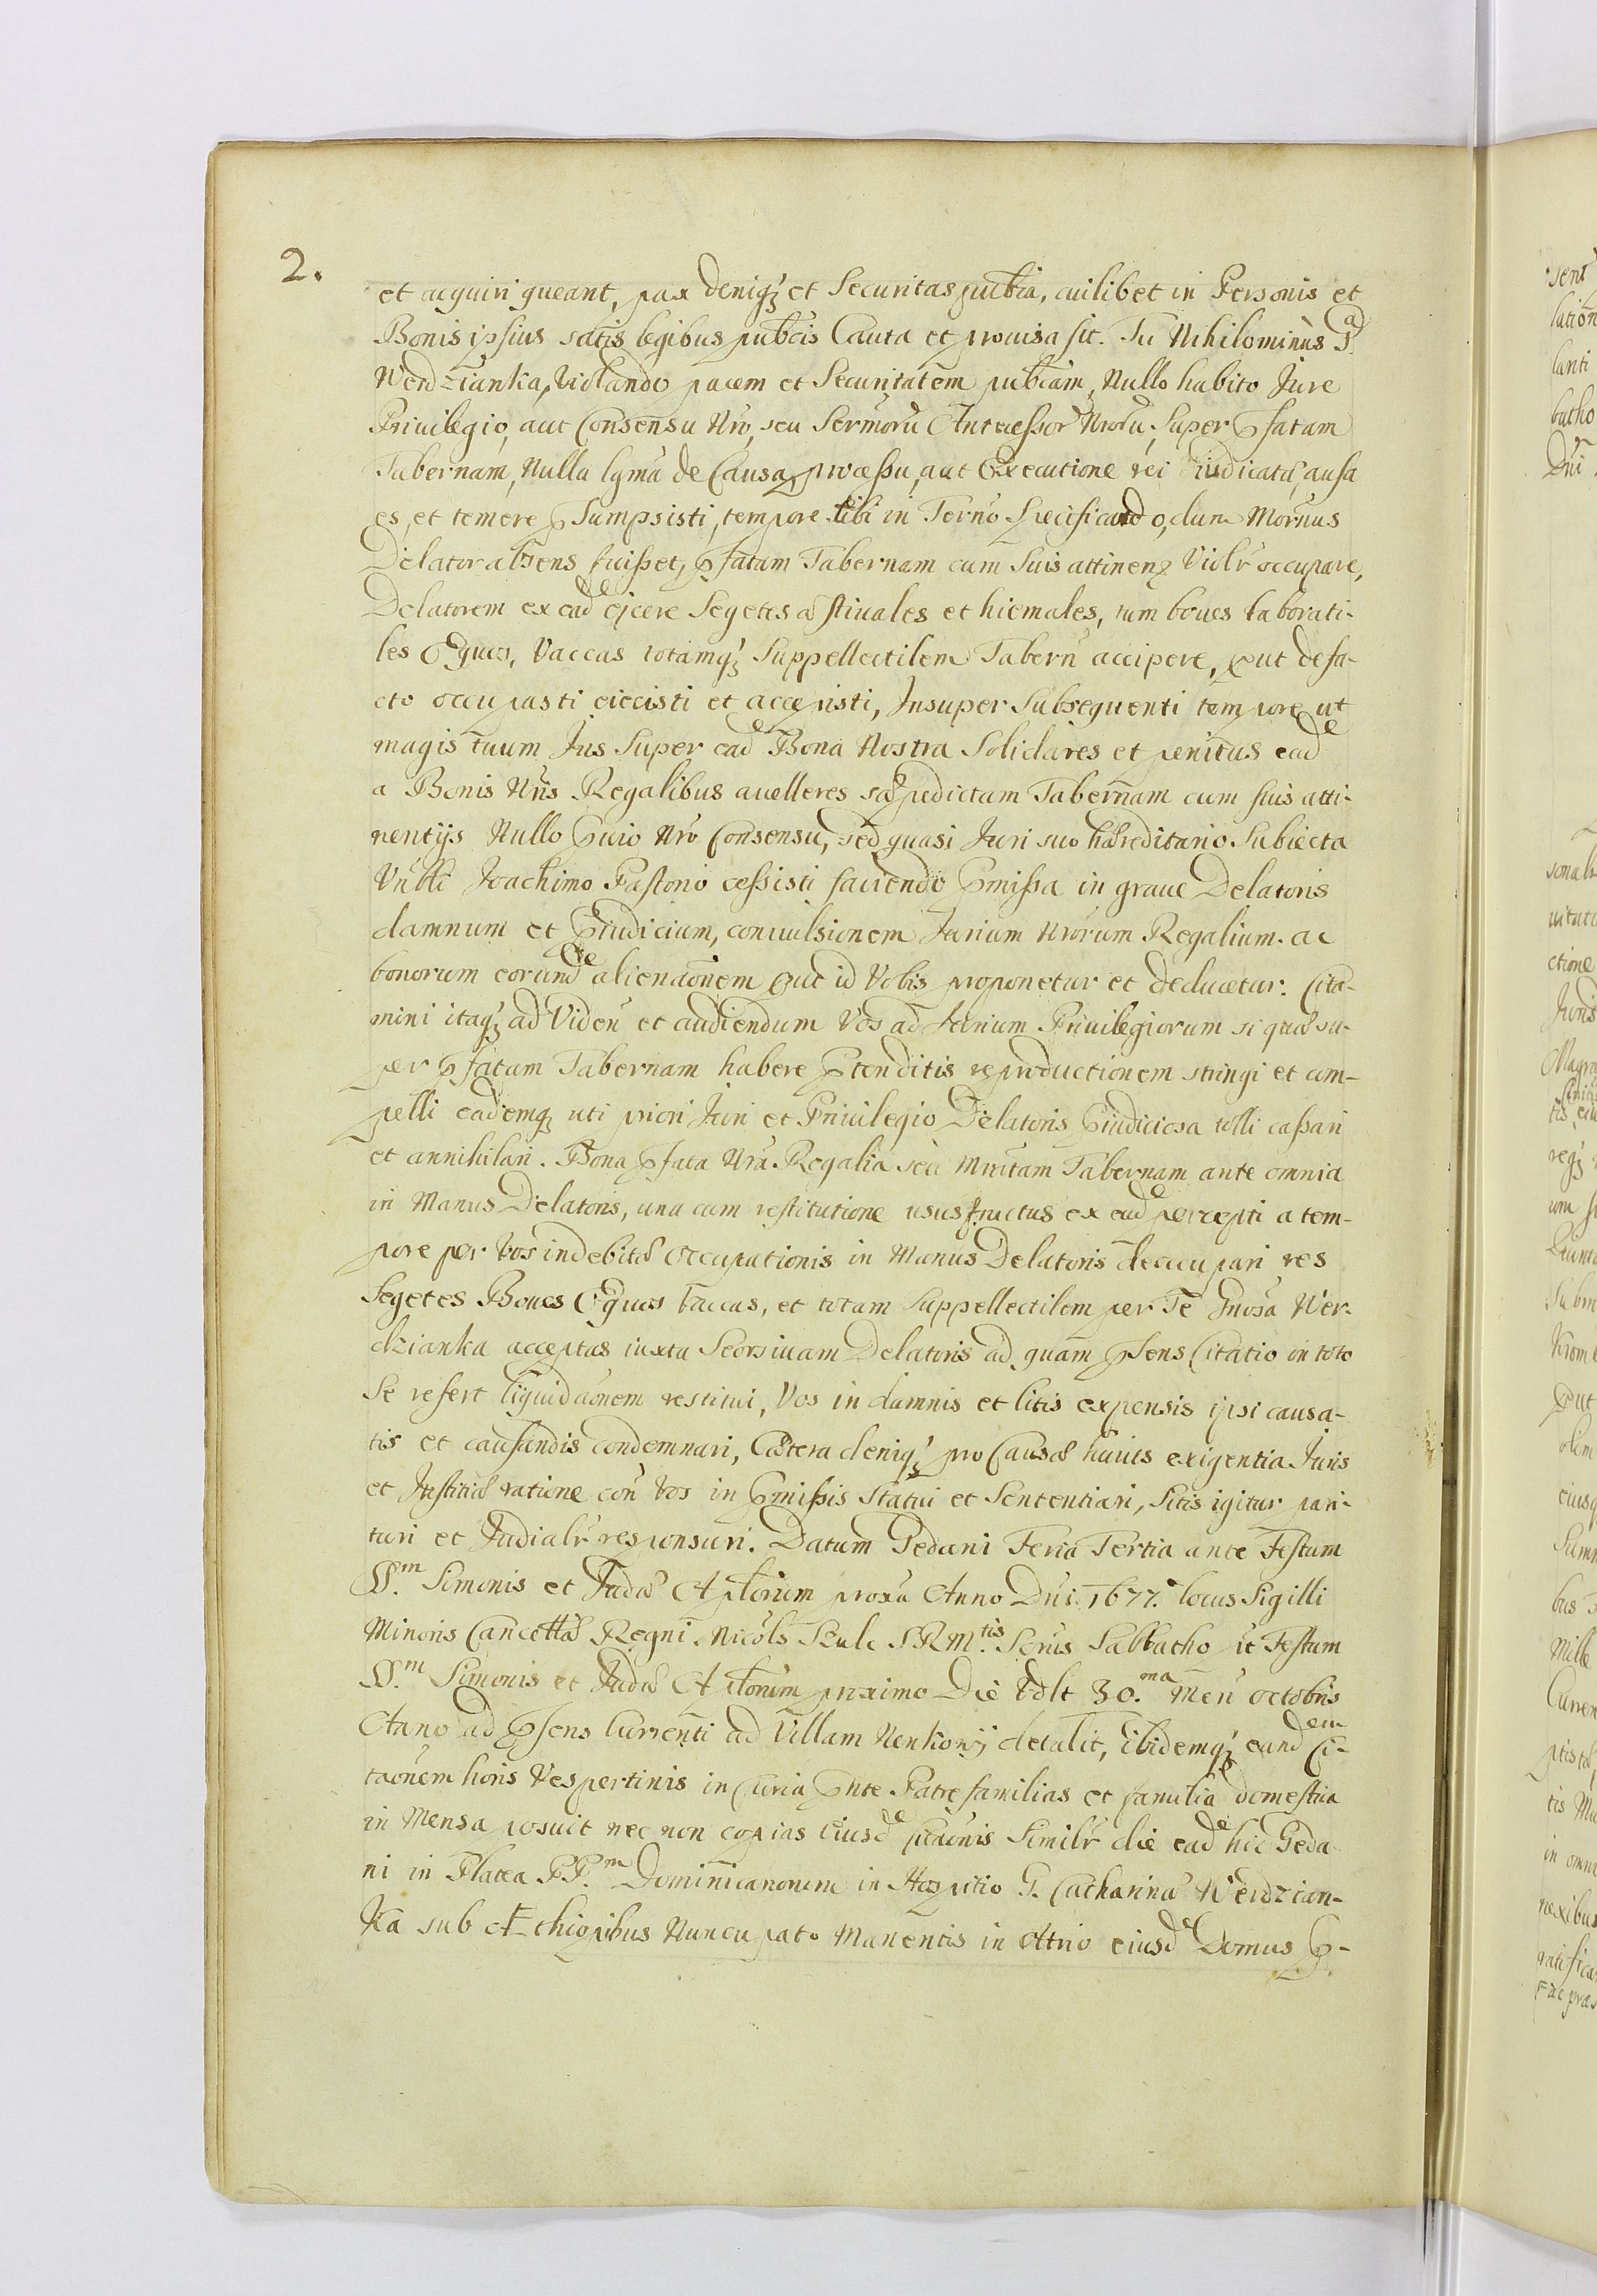 2.
et acquiri queant, pax deniqꝫ et Securitas publca, cuilibet in Personis et
Bonis ipsius satis legibus publcis Cauta et prouisa sit. Tu Nihilominùs
Werdzianka, Violando pacem et Securitatem publcam, Nullo habito Jure
Priuilegio, aut Consensu Nro, seu Sermorū Antecessor Nrorū, Super pfatam
Tabernam, Nulla lgma de Causa, processu, aut Executione rei iudicatæ, ausa
es, et temere pSumpsisti, tempore tibi in Termo Specificando, dum
Delator absens fuisset, pfatam Tabernam cum Suis attinen Violr occupare,
Delatorem ex eade ejcere Segetes æstiuales et hiemales, tum boues laborati-
les Equos, Vaccas totamqꝫ Suppellectilem Tabern accipere, put de fa-
cto occupasti eiecisti et accepisti, Insuper Subsequenti tempore ut
magis tuum Jus Super eade Bona Nostra Solidares et penitus eade
a Bonis Nris Regalibus auelleres sæpedictam Tabernam cum suis atti-
nentijs Nullo puio Nro Consensu, sed quasi Juri suo hæreditario Subiecta
Joachimo Pastorio cessisti faciendo pmissa in graue Delatoris
damnum et piudicium, conuulsionem Jurium Nrorum Regalium ac
bonorum eorunde alienaonem put id Vobis proponetur et deducetur. Cita-
mini itaqꝫ ad Viden et audiendum Vos ad Jurium Priuilegiorum si quæ su-
per pfatam Tabernam habere ptenditis reproductionem stringi et com-
pelli eademqꝫ uti priori Juri et Priuilegio Delatoris piudiciosa tolli cassari
et annihilari. Bona pfata Nra Regalia seu Tabernam ante omnia
in Manus Delatoris, una cum restitutione ususfructus ex eade percepti a tem-
pore per Vos indebitæ occupationis in Manus Delatoris deoccupari res
Segetes Boues Equos Vaccas, et totam Suppellectilem per Te Gnosa Wer-
dzianka acceptas iuxta Seorsiuam Delatoris ad quam psens Citatio in toto
Se refert liquidaonem restitui, Vos in damnis et litis expensis ipsi causa-
tis et causandis condemnari, Cætera deniqꝫ pro Causæ huius exigentia Juris
et Justitiæ ratione con Vos in pmissis statui et Sententiari, Sitis igitur pari-
turi et Judialr responsuri. Datum Gedani Feria Tertia ante Festum
SS.m Simonis et Judæ Aplorum proxa Anno Dni 1677. locus Sigilli
Minoris Cancellæ Regni. Nicols S R M.tis Sabbatho Festum
SS.m Simonis et Judæ Aplorum proximo Die 30.ma Men octobris
Anno ad psens Currenti ad Villam Nenkowÿ detulit, ibidemqꝫ eandem Ci-
taonem horis Vespertinis in Curia pnte Patre familias et familia domestica
in Mensa posuit nec non copias eiusde citaonis Similr die eade hic Geda
ni in Platea PP.m Dominicanorum in Hospitio G. Catharinæ Werdzian-
Ka sub Æthiopibus Nuncupato Manentis in Atrio eiusde Domus p-